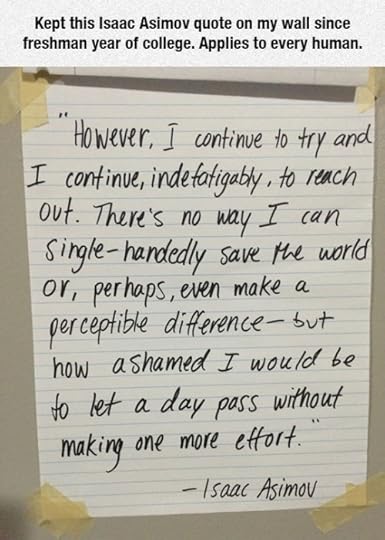 Kept this Isaac Asimov quote on my wall since
freshman year of college. Applies to every human.
"However, I continue to try and
I continue, indefatigably, to reach
out. There's no way I can
single-handedly save the world
or, perhaps, even make a
perceptible difference - but
how ashamed I would be
to let a day pass without
making one more effort."
- Isaac Asimov